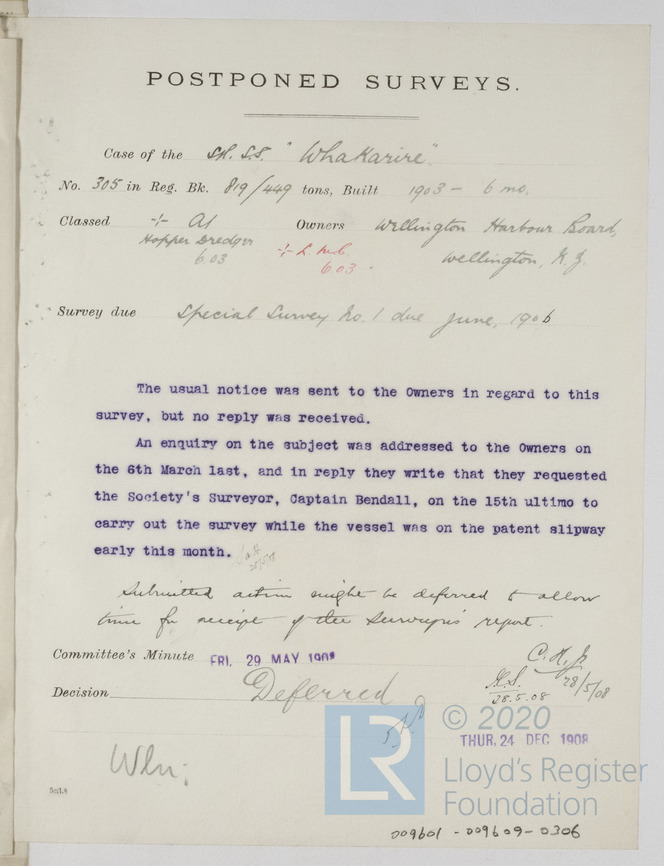 POSTPONED SURVEYS.
Case of the S.S. "Whakarire"
No. 305 in Reg. Bk. 819/449 tons, Built 1903 - 6 mo.
Classed + A1 Owners Wellington Harbour Board,
Hopper Dredger + L.M.C. Wellington, N.Z.
6.03 6.03
Survey due Special Survey No. 1 due June, 1906
The usual notice was sent to the Owners in regard to this
survey, but no reply was received.
An enquiry on the subject was addressed to the Owners on
the 6th March last, and in reply they write that they requested
the Society's Surveyor, Captain Bendall, on the 15th ultimo to
carry out the survey while the vessel was on the patent slipway
early this month.
28/5/08
Submitted action might be deferred to allow
time for receipt of the Surveyor's report.
Committee's Minute FRI. 29 MAY 1908
28/5/08
28.5.08
Decision Deferred
© 2020
THUR. 24 DEC 1908
LR
Lloyd's Register
Foundation
009601 - 009609 - 0306